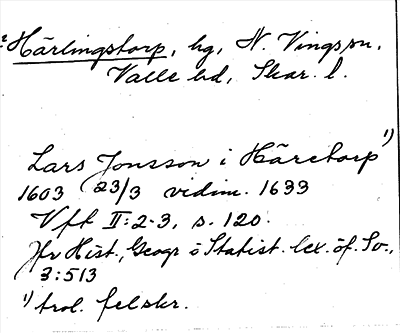 Härlingstorp, hg, N. Vings sn,
Valle hd, Skar. l.
Lars Jonsson i Häretorp 1)
1603 23/3 vidim. 1633
Vft II:2-3, s. 120.
Jfr Hist., Geogr o Statist. lex. öf. Sv.,
3:513
1) trol. felskr.